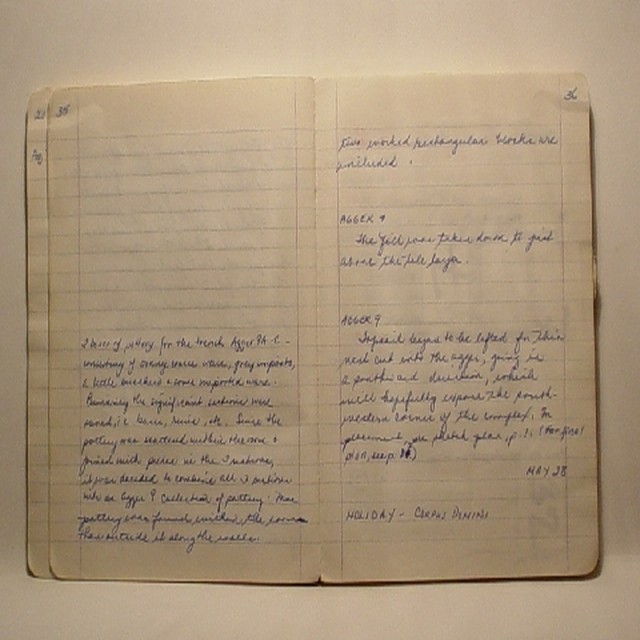 35
2 boxes of pottery for the trench Agger 9A-C -
consisting of orange coarse ware, grey impasto,
a little bucchero & some imported ware.
the significant sections were
saved, i.e. bases, rims, etc. Since the
pottery was scattered within the room &
joined with pieces in the
it was decided to combine all
into an Agger 9 collection of pottery. More
pottery was found within the room
than outside it along the walls.
36
two worked rectangular blocks are
included.
AGGER 9
The fill was taken down to just
above the tile layer.
AGGER 9
Topsoil began to be lifted for this
next cut into the agger, going in
a southward direction, which
will hopefully expose the south-
western corner of the complex. For
placement, see sketch plan, p. (For final
plan, see p. )
MAY 28
HOLIDAY - CORPUS DOMINI